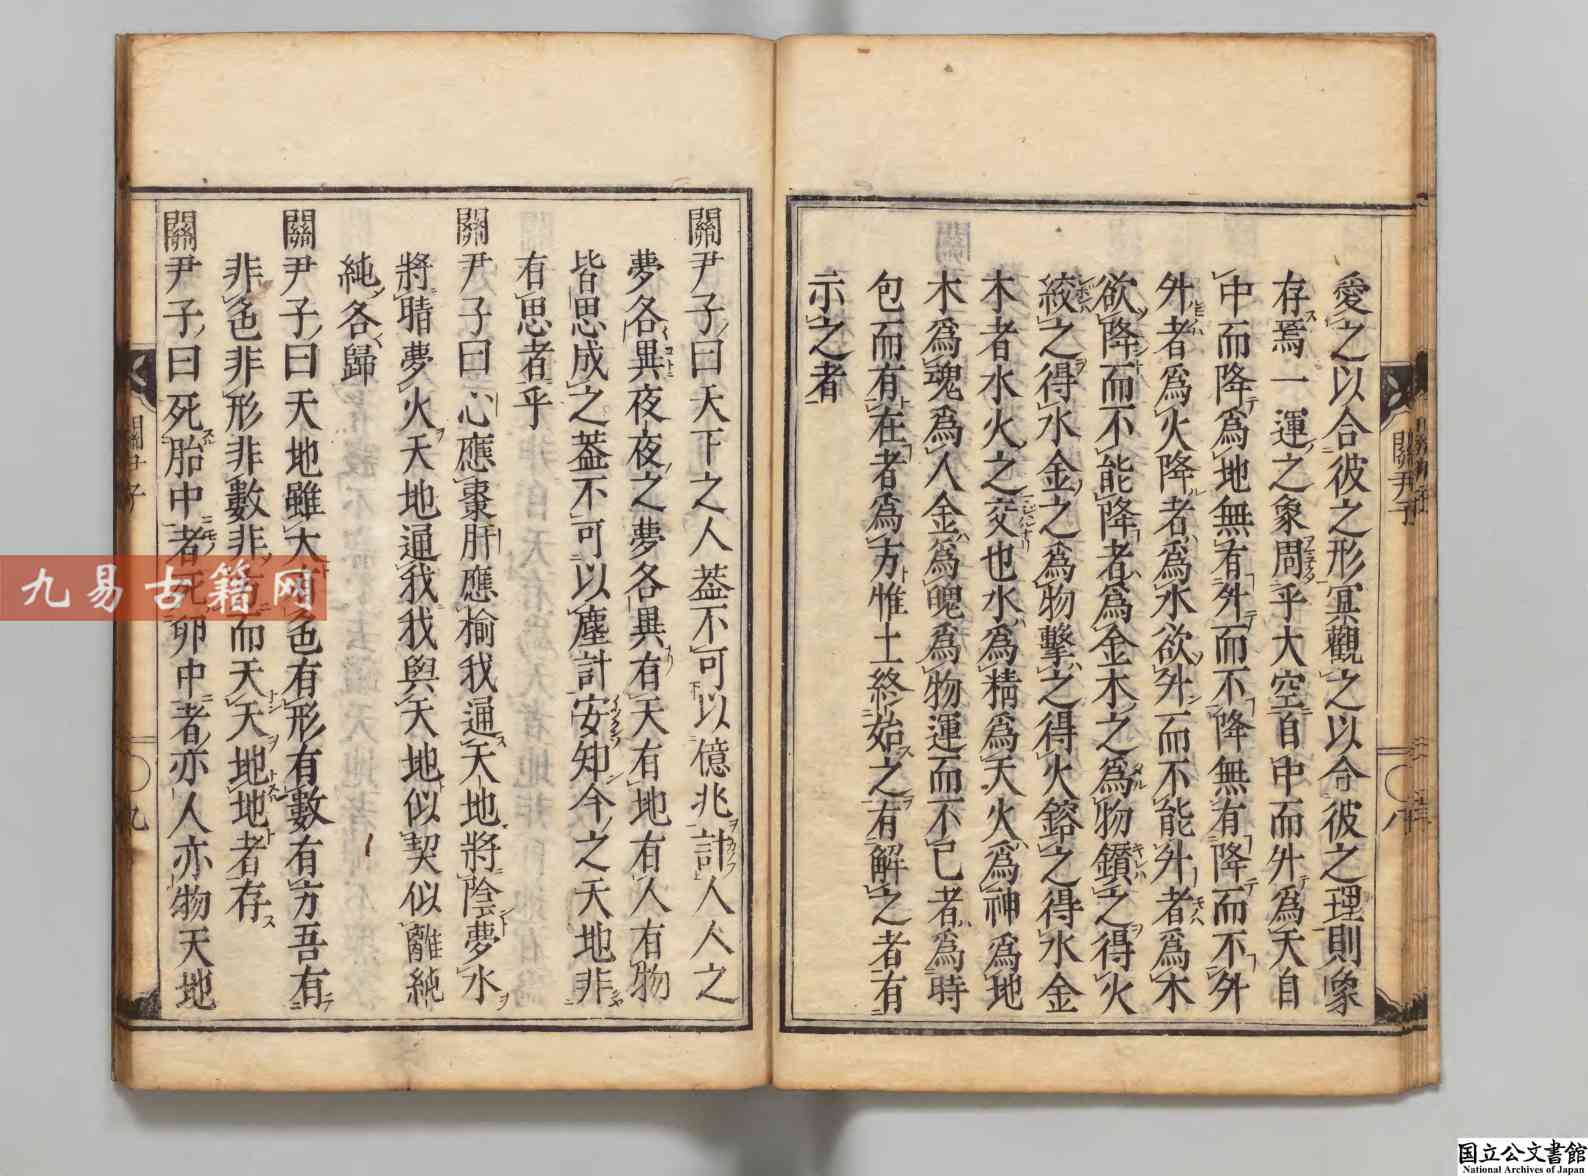 愛之以合彼之形冥觀之以合彼之理則象
存焉一運之象周乎大空自中而升爲天自
中而降爲地無有升而不降無有降而不升
升者爲火降者爲水欲升而不能升者爲木
欲降而不能降者爲金木之爲物鑽之得火
絞之得水金之爲物擊之得火鎔之得水金
木者水火之交也水爲精爲天火爲神爲地
木爲魂爲人金爲魄爲物運而不已者爲時
包而有在者爲方惟土終始之有解之者有
示之者
關尹子
八
關尹子曰天下之人蓋不可以億兆計人人之
夢各異夜夜之夢各異有天有地有人有物
皆思成之蓋不可以塵計安知今之天地非
有思者乎
關尹子曰心應棗肝應榆我通天地將陰夢水
將晴夢火天地通我我與天地似契似離純
純各歸
關尹子曰天地雖大有色有形有數有方吾有
非色非形非數非方而天天地地者存
關尹子曰死胎中者死卵中者亦人亦物天地
關尹子
九
九易古籍网
国立公文書館
National Archives of Japan